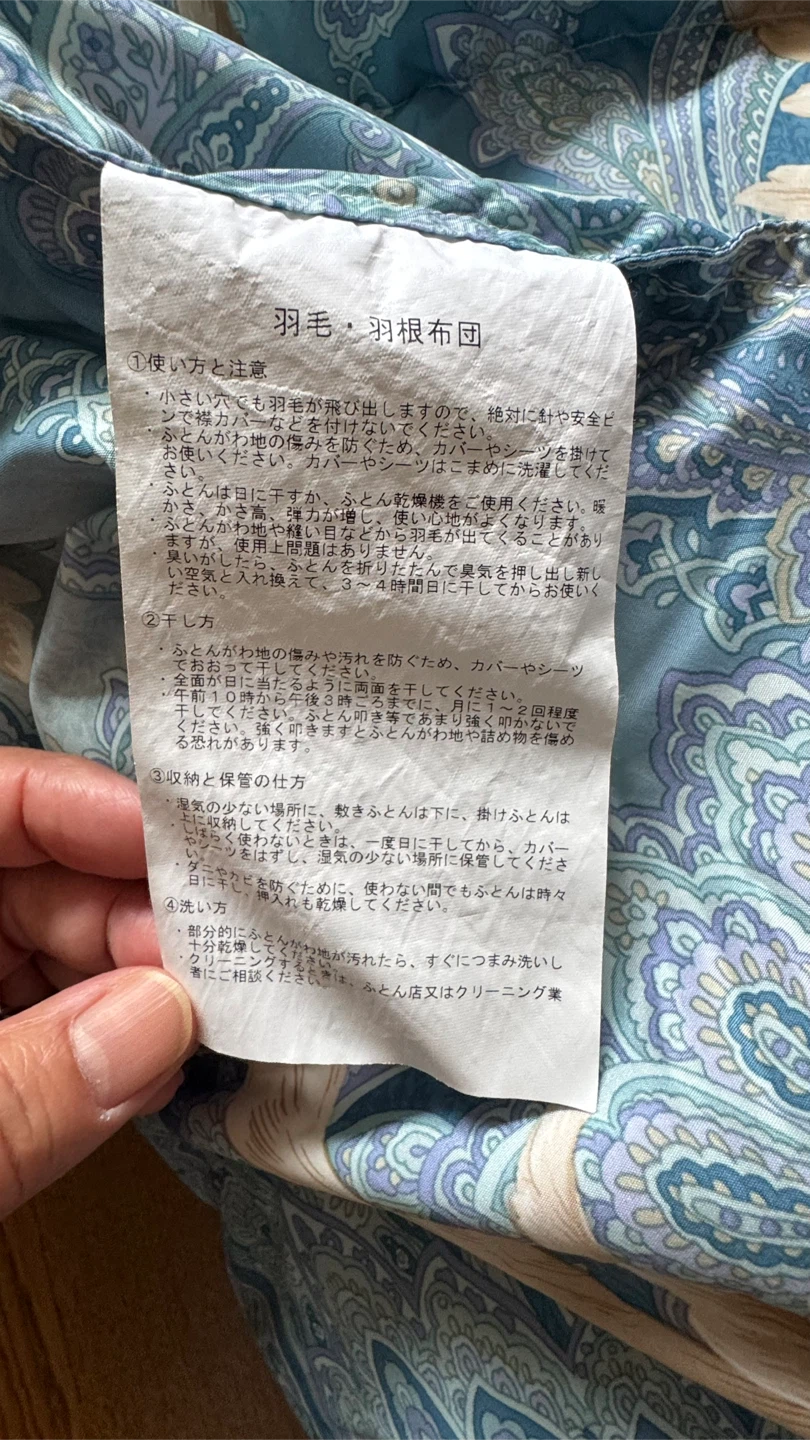 羽毛・羽根布団
①使い方と注意
・小さい穴でも羽毛が飛び出しますので、絶対に針や安全ピ
ンで襟カバーなどを付けないでください。
・ふとんがわ地の傷みを防ぐため、カバーやシーツを掛けて
お使いください。カバーやシーツはこまめに洗濯してくだ
さい。
・ふとんは日に干すか、ふとん乾燥機をご使用ください。暖
かさ、かさ高、弾力が増し、使い心地がよくなります。
・ふとんがわ地や縫い目などから羽毛が出てくることがあり
ますが、使用上問題はありません。
・臭いがしたら、ふとんを折りたたんで臭気を押し出し新し
い空気と入れ換えて、３～４時間日に干してからお使いく
ださい。
②干し方
・ふとんがわ地の傷みや汚れを防ぐため、カバーやシーツ
でおおって干してください。
・全面が日に当たるように両面を干してください。
・午前１０時から午後３時ごろまでに、月に１～２回程度
干してください。ふとん叩き等であまり強く叩かないで
ください。強く叩きますとふとんがわ地や詰め物を傷め
る恐れがあります。
③収納と保管の仕方
・湿気の少ない場所に、敷きふとんは下に、掛けふとんは
上に収納してください。
・しばらく使わないときは、一度日に干してから、カバー
やシーツをはずし、湿気の少ない場所に保管してくださ
い。
・ダニやカビを防ぐために、使わない間でもふとんは時々
日に干し、押入れも乾燥してください。
④洗い方
・部分的にふとんがわ地が汚れたら、すぐにつまみ洗いし
十分乾燥してください。
・クリーニングするときは、ふとん店又はクリーニング業
者にご相談ください。